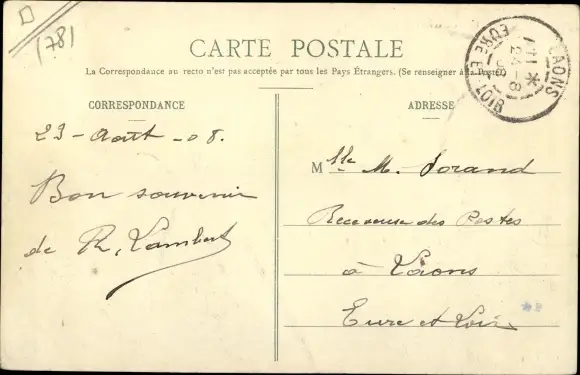 (781
CARTE POSTALE
La Correspondance au recto n'est pas acceptée par tous les Pays Étrangers. (Se renseigner à la Poste)
CORRESPONDANCE
ADRESSE
LAONS
24-8
08
EURE ET LOIR
23 - Août - 08.
Bon souvenir
de Th. Lambert
Mlle M. Dorand
Receveuse des Postes
à Laons
Eure et Loir